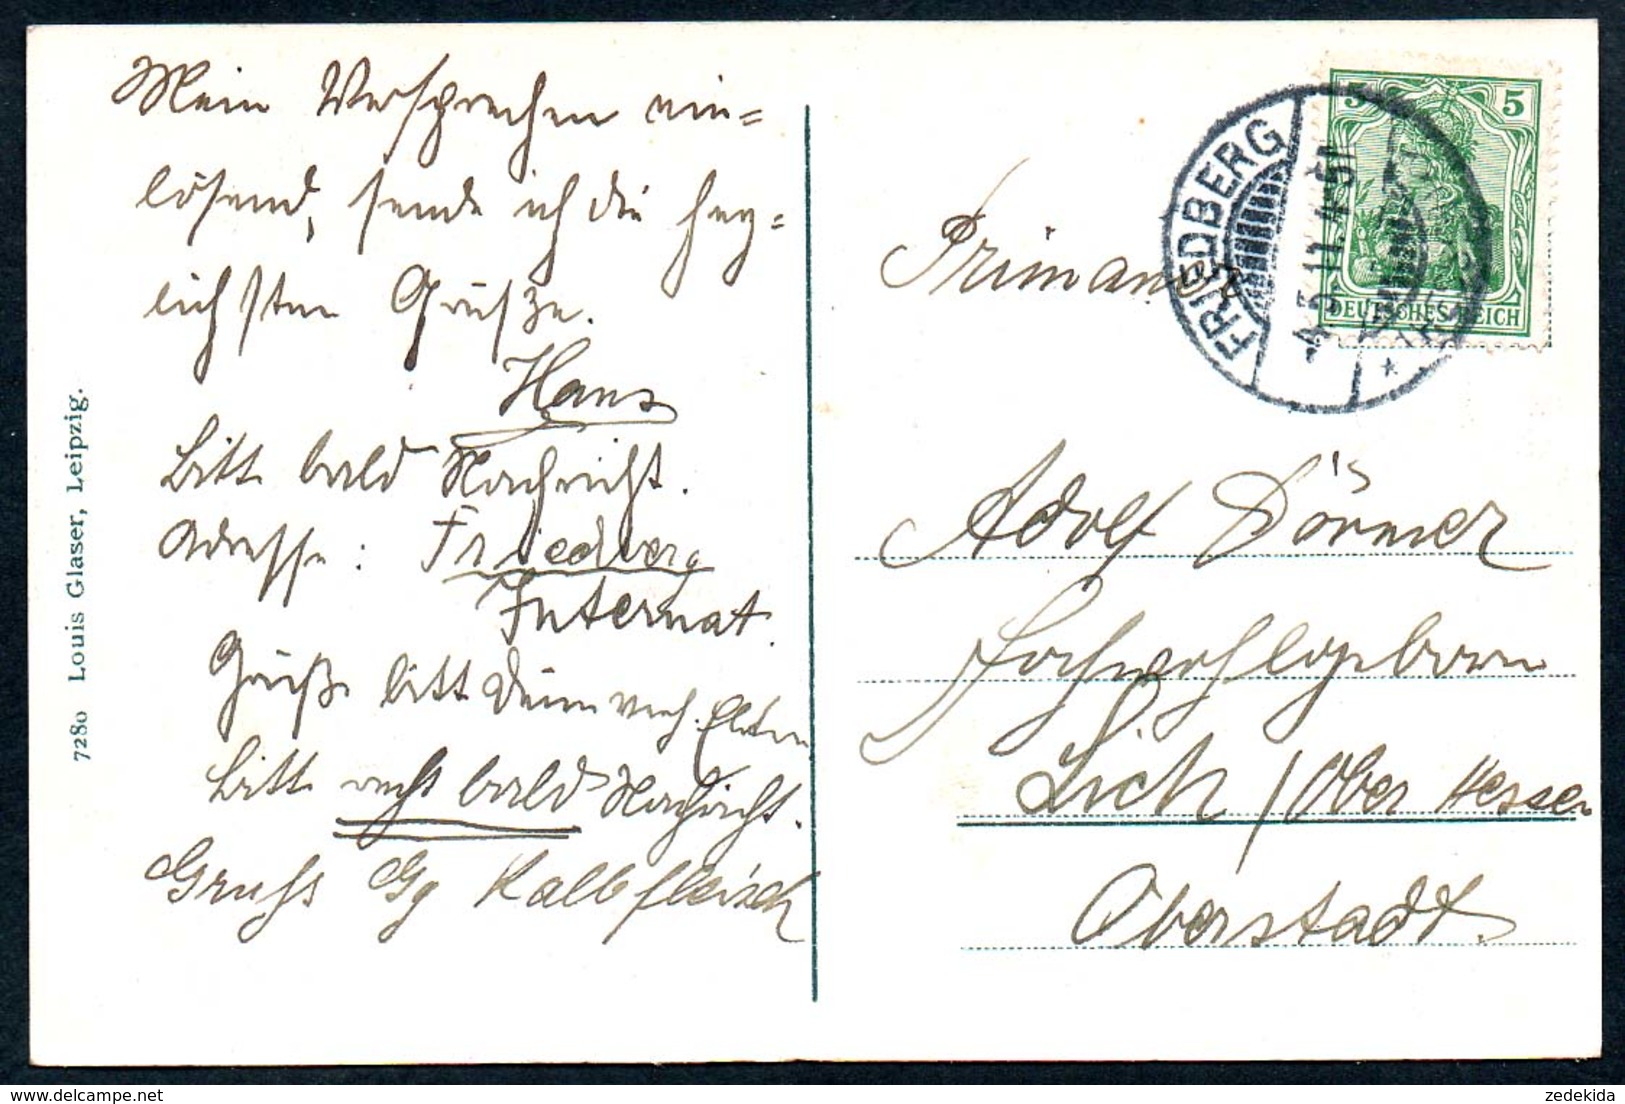 Mein Versprechen ein=
lösend, sende ich die herz=
lichsten Grüße.
Hans
Bitte bald Nachricht.
Adresse: Friedberg
Internat.
Grüße bitte Deine verh. Eltern
Bitte recht bald Nachricht.
Gruss Gg Kalbfleisch
7280 Louis Glaser, Leipzig.
FRIEDBERG
5.11.
5 5
DEUTSCHES REICH
Primaner
Adolf Dörmer
Hochwohlgeboren
Lich / Ober Hessen
Oberstadt.
zedekida